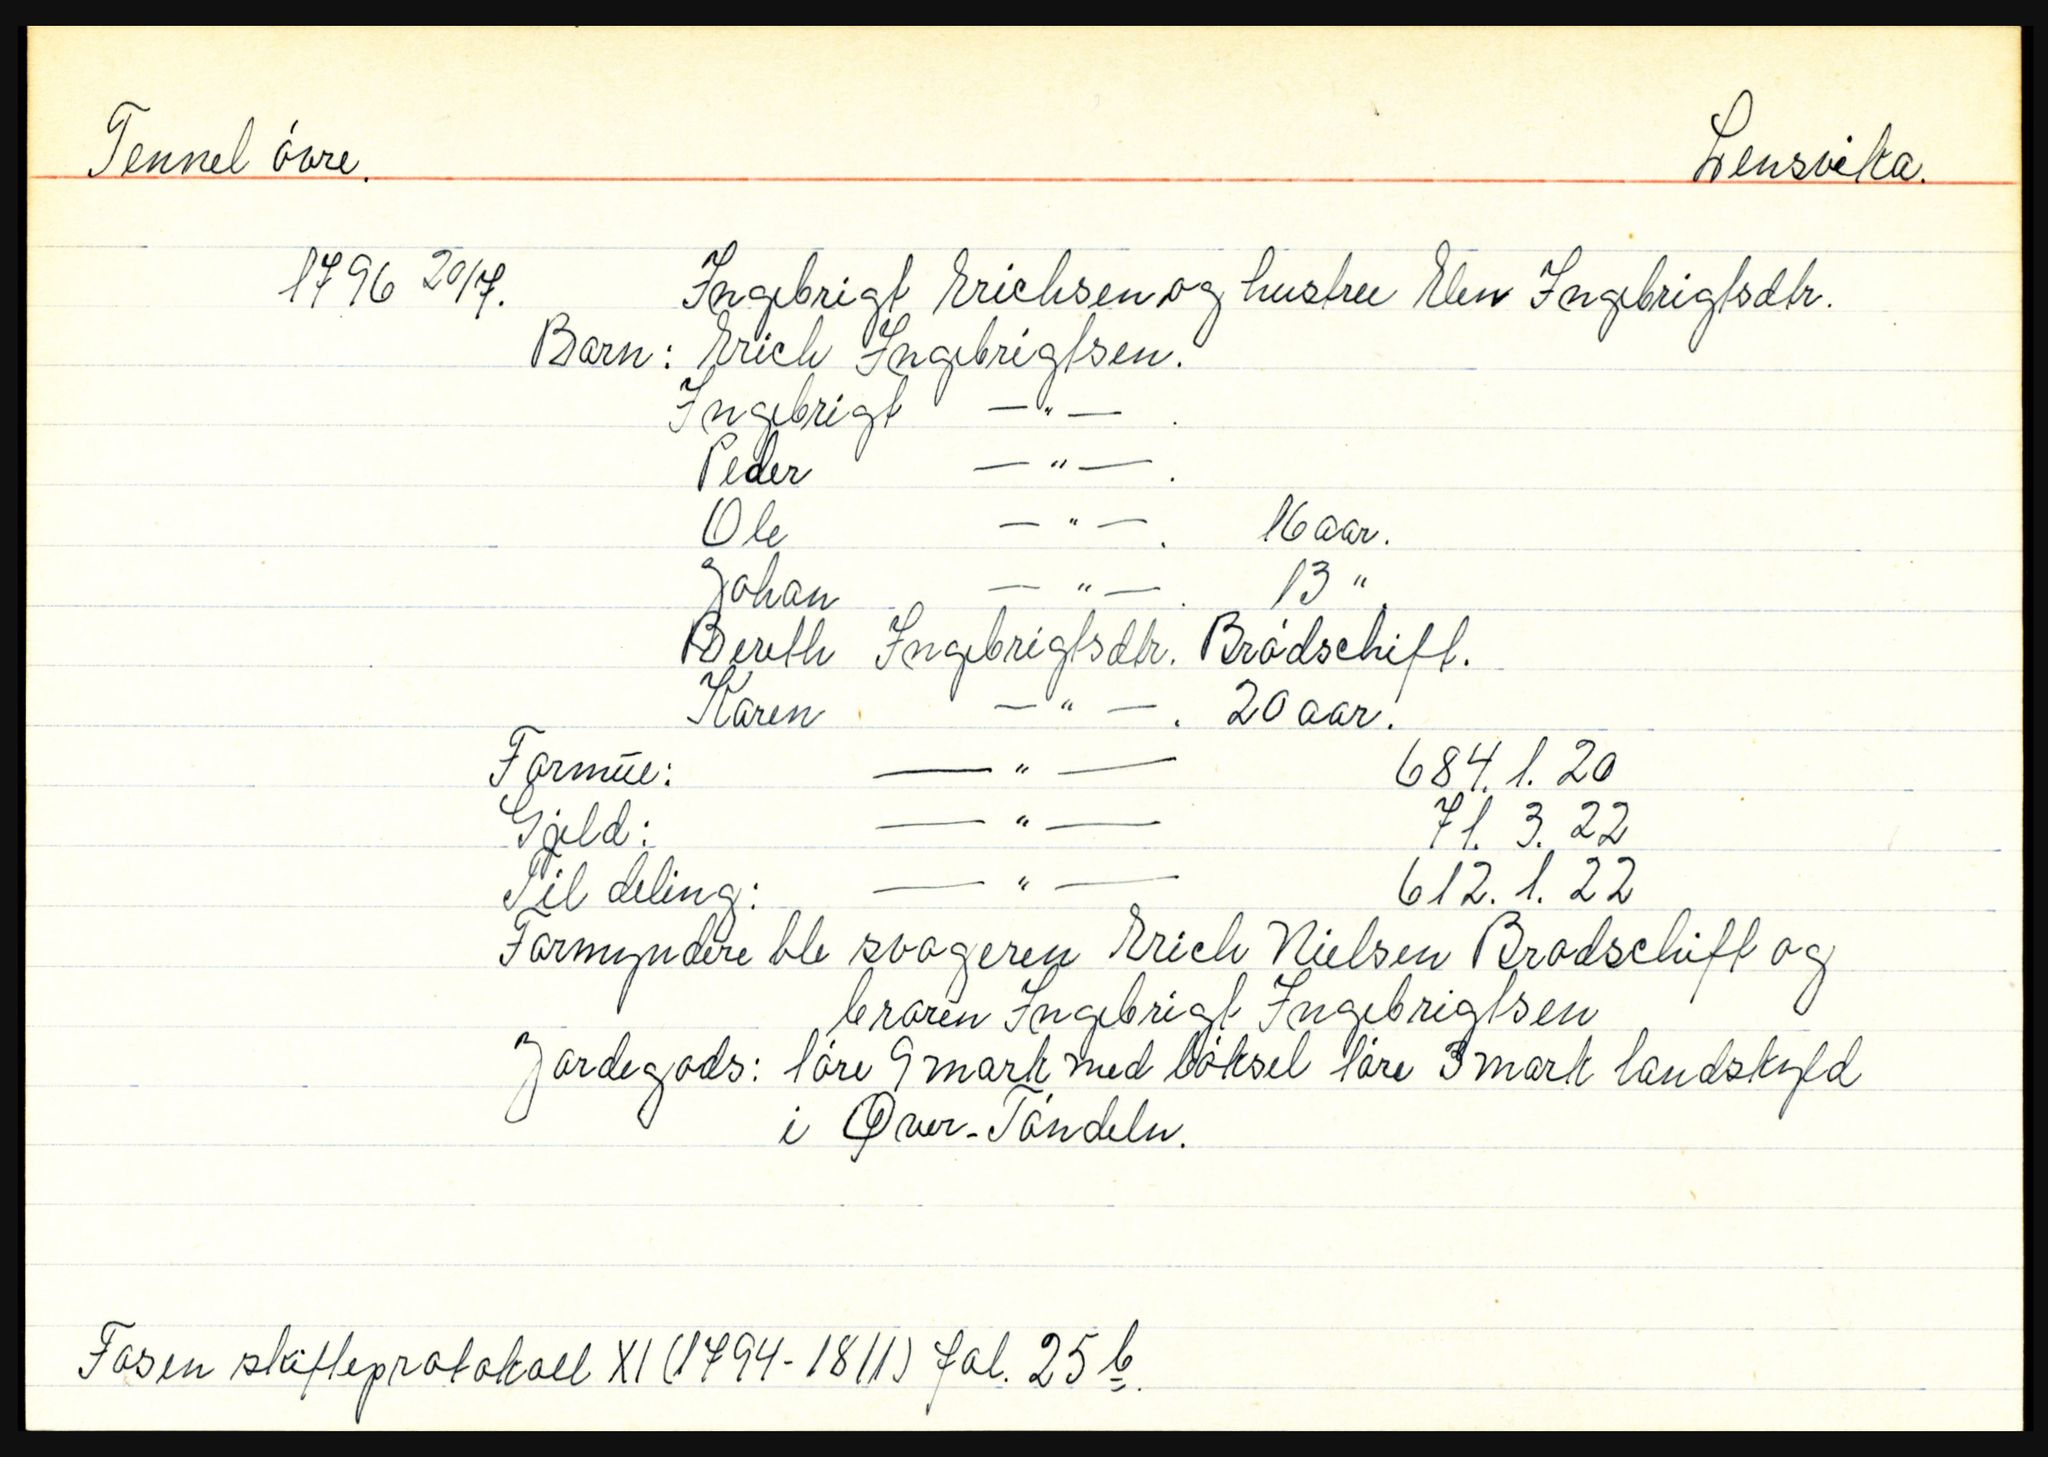 Tennel óvre. Lensvika.
1796 20/7. Ingebrigt Erichsen og hustru Elen Ingebrigtsdtr.
Barn: Erich Ingebrigtsen.
Ingebrigt — " — .
Peder — " — .
Ole — " — . 16 aar.
Johan — " — . 13 " .
Bereth Ingebrigtsdtr. Bródschift.
Karen — " — . 20 aar.
Formūe: — " — 684. 1. 20
Gjeld: — " — 71. 3. 22
Til deling: — " — 612. 1. 22
Formyndere ble svogeren Erich Nielsen Brodschift og
broren Ingebrigt Ingebrigtsen
Jordegods: 1 óre 9 mark med bóksel 1 óre 3 mark landskyld
i Øver-Tóndeln.
Fosen skifteprotokoll XI (1794-1811) fol. 25 b.